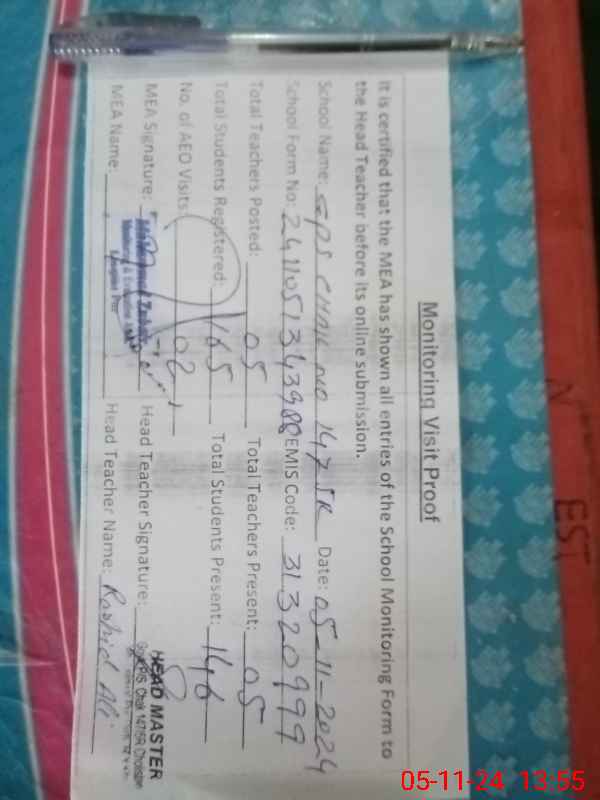 Monitoring Visit Proof
It is certified that the MEA has shown all entries of the School Monitoring Form to
the Head Teacher before its online submission.
School Name: GPS CHAK NO 147 5R Date: 05-11-2024
School Form No: EMIS Code: 31320999
Total Teachers Posted: 05 Total Teachers Present: 05
Total Students Registered: 165 Total Students Present: 146
No. of AEO Visits 02
MEA Signature: Head Teacher Signature:
MEA Name: Head Teacher Name: Rashid Ali
HEAD MASTER
EST
05-11-24 13:55